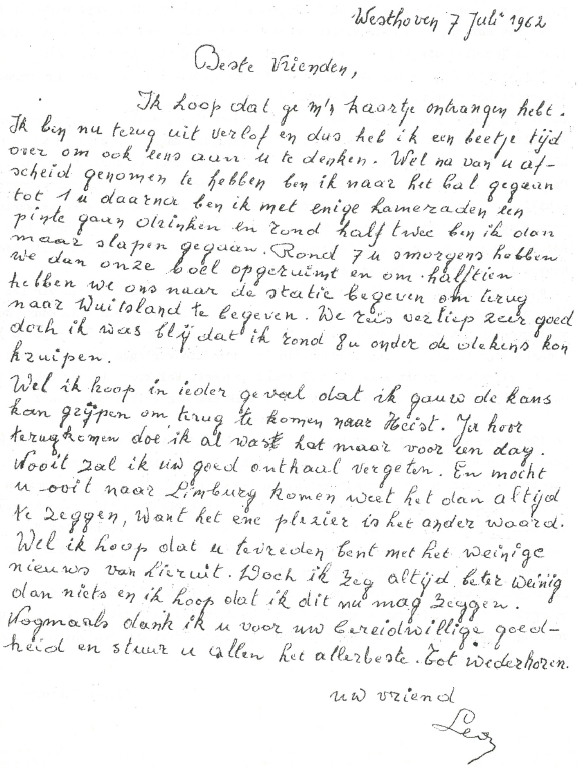 Westhoven 7 Juli 1962
Beste Vrienden,
Ik hoop dat ge m'n kaartje ontvangen hebt.
Ik ben nu terug uit verlof en dus heb ik een beetje tijd
over om ook eens aan u te denken. Wel na van u af-
scheid genomen te hebben ben ik naar het bal gegaan
tot 1 u daarna ben ik met enige kameraden een
pinte gaan drinken en rond half twee ben ik dan
maar slapen gegaan. Rond 7 u smorgens hebben
we dan onze boel opgeruimt en om halftien
hebben we ons naar de statie begeven om terug
naar Duitsland te begeven. De reis verliep zeer goed
doch ik was blij dat ik rond 8u onder de dekens kon
kruipen.
Wel ik hoop in ieder geval dat ik gauw de kans
kan grijpen om terug te komen naar Heist. Ja hoor
terugkomen doe ik al was het maar voor een dag.
Nooit zal ik uw goed onthaal vergeten. En mocht
u ooit naar Limburg komen weet het dan altijd
te zeggen, want het ene plezier is het ander waard.
Wel ik hoop dat u tevreden bent met het weinige
nieuws van hieruit. Doch ik zeg altijd beter weinig
dan niets en ik hoop dat ik dit nu mag zeggen.
Nogmaals dank ik u voor uw bereidwillige goed-
heid en stuur u allen het allerbeste. Tot wederhoren.
uw vriend
Leon